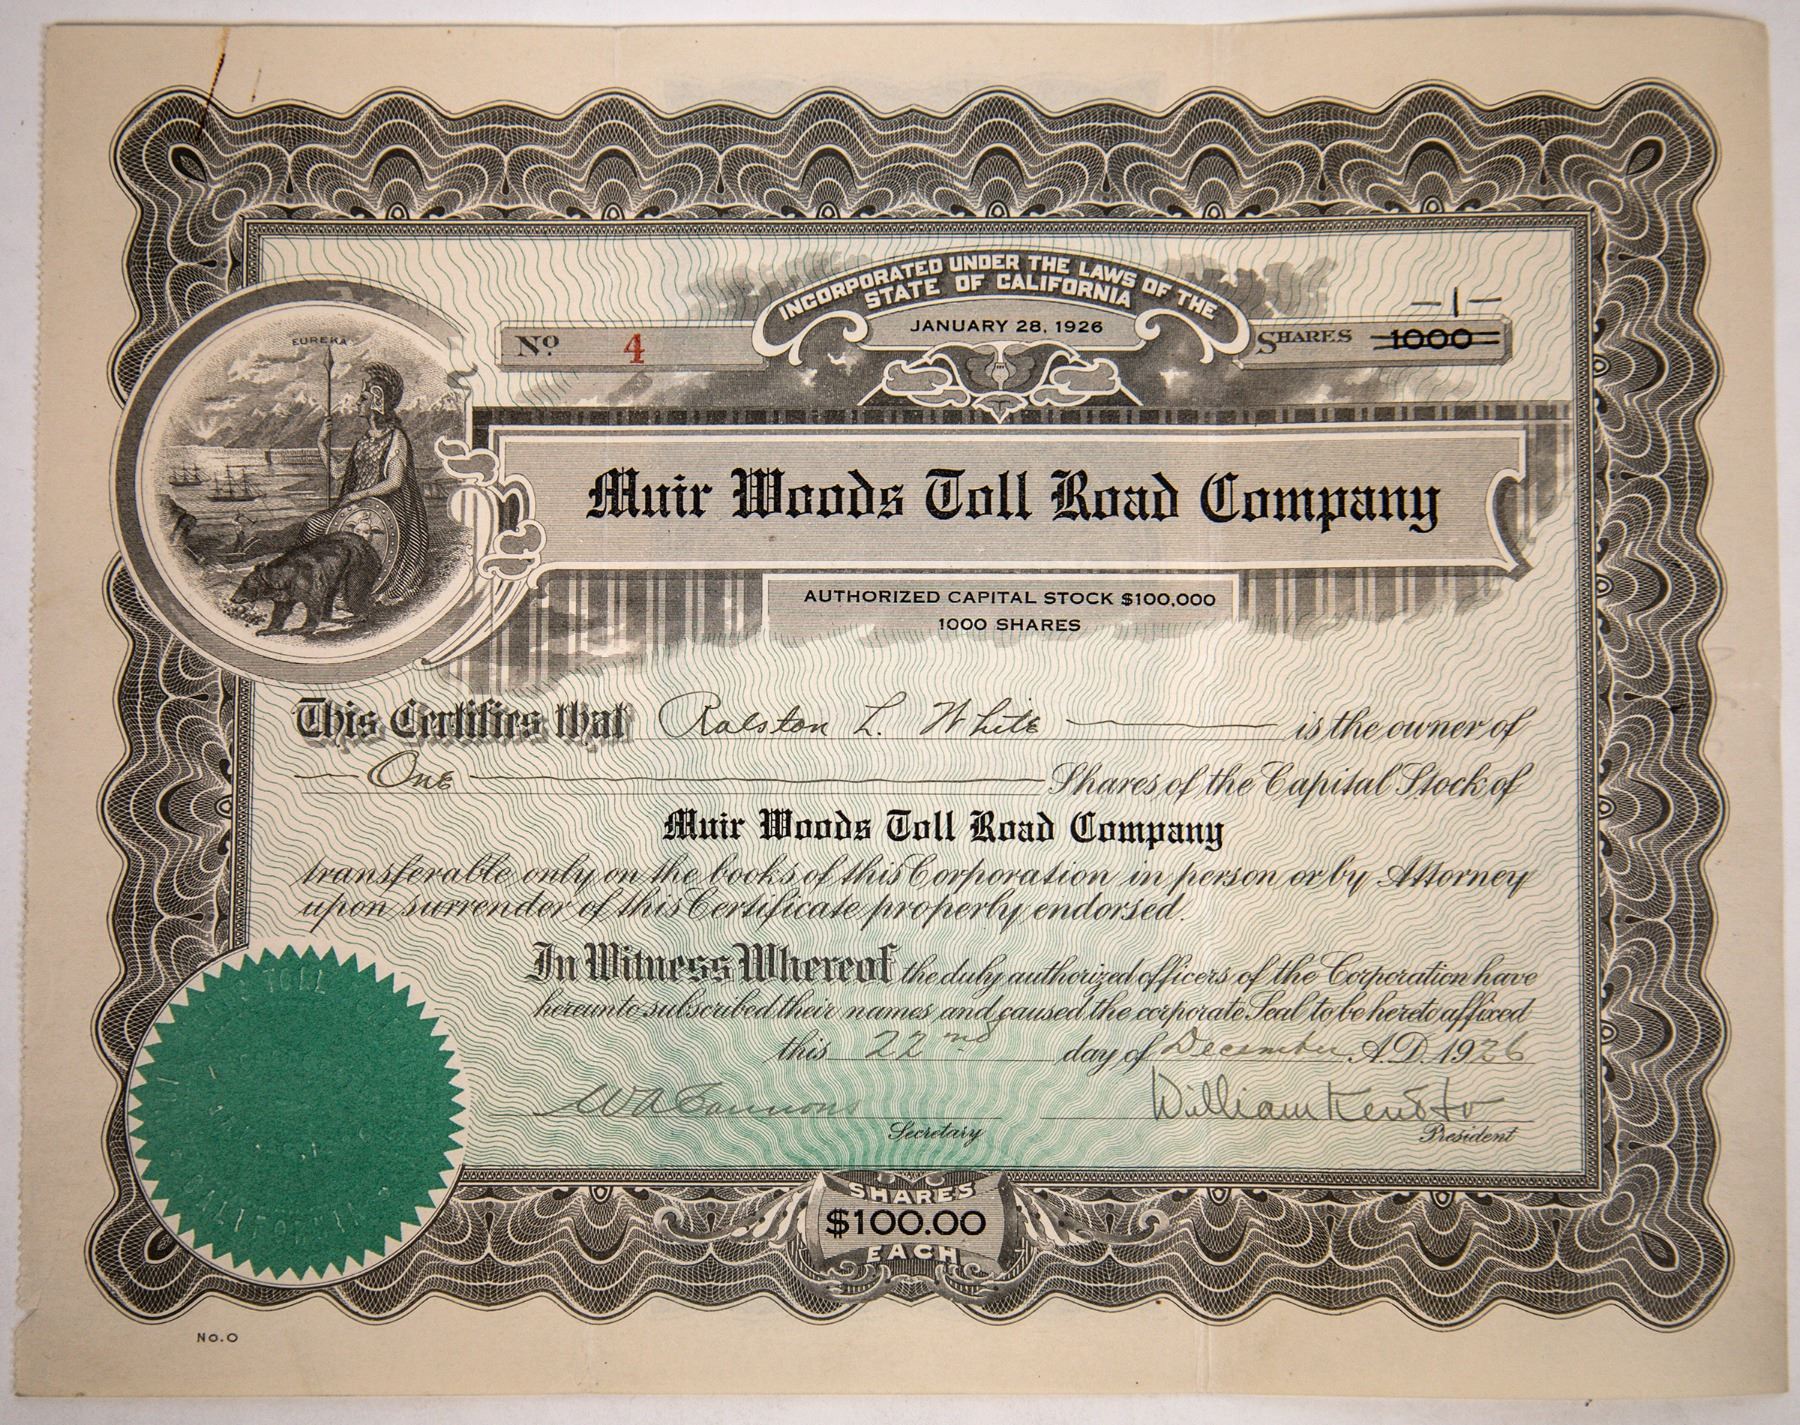 EUREKA
INCORPORATED UNDER THE LAWS OF THE
STATE OF CALIFORNIA
JANUARY 28, 1926
No 4
SHARES 1000
-1-
Muir Woods Toll Road Company
AUTHORIZED CAPITAL STOCK $100,000
1000 SHARES
This Certifies that Ralston L. White is the owner of
One Shares of the Capital Stock of
Muir Woods Toll Road Company
transferable only on the books of this Corporation in person or by Attorney
upon surrender of this Certificate properly endorsed.
In Witness Whereof the duly authorized officers of the Corporation have
hereunto subscribed their names and caused the corporate Seal to be hereto affixed
this 22nd day of December A.D. 1926
William Kent Jr
Secretary
President
TOLL
CALIFORNIA
SHARES
$100.00
EACH
No.0